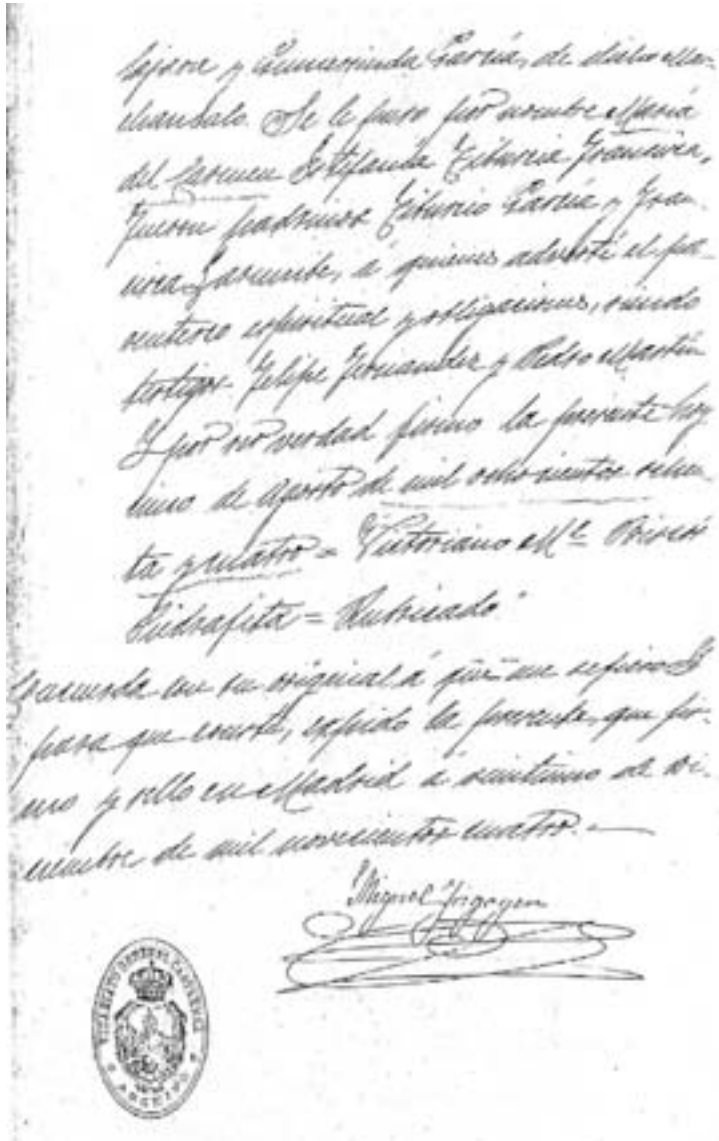 lajara y Gumersinda García, de dicho Mar-
chamalo. Se le puso por nombre María
del Carmen Estefanía Tiburcia Francisca,
fueron padrinos Tiburcio García y Fran-
cisca, á quienes advertí el pa-
rentesco espiritual y obligaciones, siendo
testigos Felipe Fernandez y Pedro Martín
Y por ser verdad firmo la presente hoy
cinco de Agosto de mil ochocientos ochen
ta y cuatro = Victoriano Mª
Piedrafita = Rubricado"
Concuerda con su original á que me refiero Y
para que conste, expido la presente, que fir-
mo y sello en Madrid á veintiuno de di-
ciembre de mil novecientos cuatro.=
Miguel Irigoyen
VICARIATO GENERAL CASTRENSE
ARCHIVO